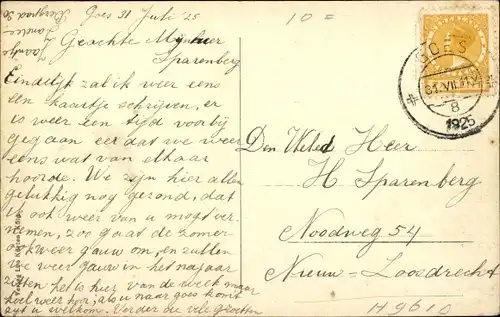 Goes 31 Juli '25
10 =
Geachte Mijnheer
Sparenberg
Eindelijk zal ik weer eens
een kaartje schrijven, er
is weer een tijd voorbij
gegaan eer dat we weer
eens wat van elkaar
hoorde. We zijn hier allen
gelukkig nog gezond, dat
U ook weer van u mogt ver-
nemen, zoo gaat de zomer
ook weer gauw om, en zullen
we weer gauw in het najaar
zitten het is hier van de week maar
koel weer hoor, als u naar goes komt
zyt u welkom. Verder die vele groetten
Jaantje
Zandee
Beesgraad 30
GOES
31.VII
8
1925
Den Weled Heer
H Sparenberg
Noodweg 54
Nieuw-Loosdrecht
H 9610